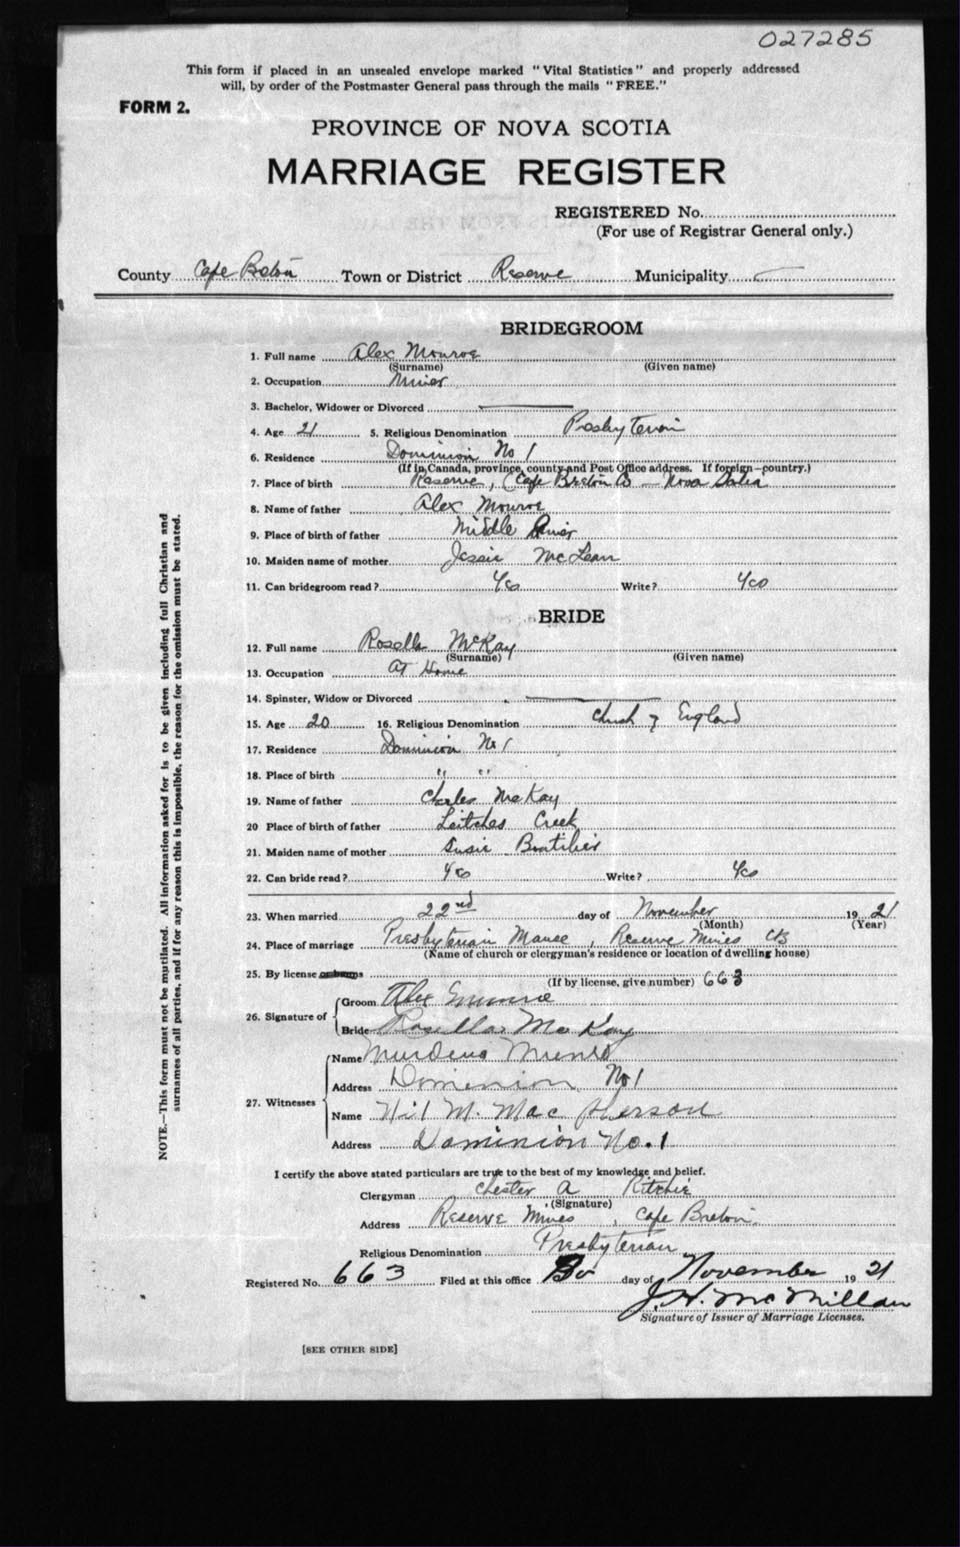 027285
This form if placed in an unsealed envelope marked "Vital Statistics" and properly addressed
will, by order of the Postmaster General pass through the mails "FREE."
FORM 2.
PROVINCE OF NOVA SCOTIA
MARRIAGE REGISTER
REGISTERED No.
(For use of Registrar General only.)
County Cape Breton Town or District Reserve Municipality
BRIDEGROOM
1. Full name Alex Monroe
(Surname) (Given name)
2. Occupation Miner
3. Bachelor, Widower or Divorced
4. Age 21 5. Religious Denomination Presbyterian
6. Residence Dominion No 1
(If in Canada, province, county and Post Office address. If foreign—country.)
7. Place of birth Reserve, Cape Breton Co - Nova Scotia
8. Name of father Alex Monroe
9. Place of birth of father Middle River
10. Maiden name of mother Jessie McLean
11. Can bridegroom read? Yes Write? Yes
BRIDE
12. Full name Rosella McKay
(Surname) (Given name)
13. Occupation At Home
14. Spinster, Widow or Divorced
15. Age 20 16. Religious Denomination Church of England
17. Residence Dominion No 1
18. Place of birth " "
19. Name of father Charles McKay
20 Place of birth of father Leitches Creek
21. Maiden name of mother Susie Boutilier
22. Can bride read? Yes Write? Yes
23. When married 22nd day of November 1921
(Month) (Year)
24. Place of marriage Presbyterian Manse, Reserve Mines CB
(Name of church or clergyman's residence or location of dwelling house)
25. By license
(If by license, give number) 663
26. Signature of Groom Alex Munroe
Bride Rosella McKay
27. Witnesses
Name Murdena Munro
Address Dominion No 1
Name Neil M. MacPherson
Address Dominion No. 1
I certify the above stated particulars are true to the best of my knowledge and belief.
Clergyman Chester A Ritchie
(Signature)
Address Reserve Mines, Cape Breton
Religious Denomination Presbyterian
Registered No. 663 Filed at this office day of November 1921
J. H. McMillan
Signature of Issuer of Marriage Licenses.
[SEE OTHER SIDE]
NOTE.—This form must not be mutilated. All information asked for is to be given including full Christian and
surnames of all parties, and if for any reason this is impossible, the reason for the omission must be stated.